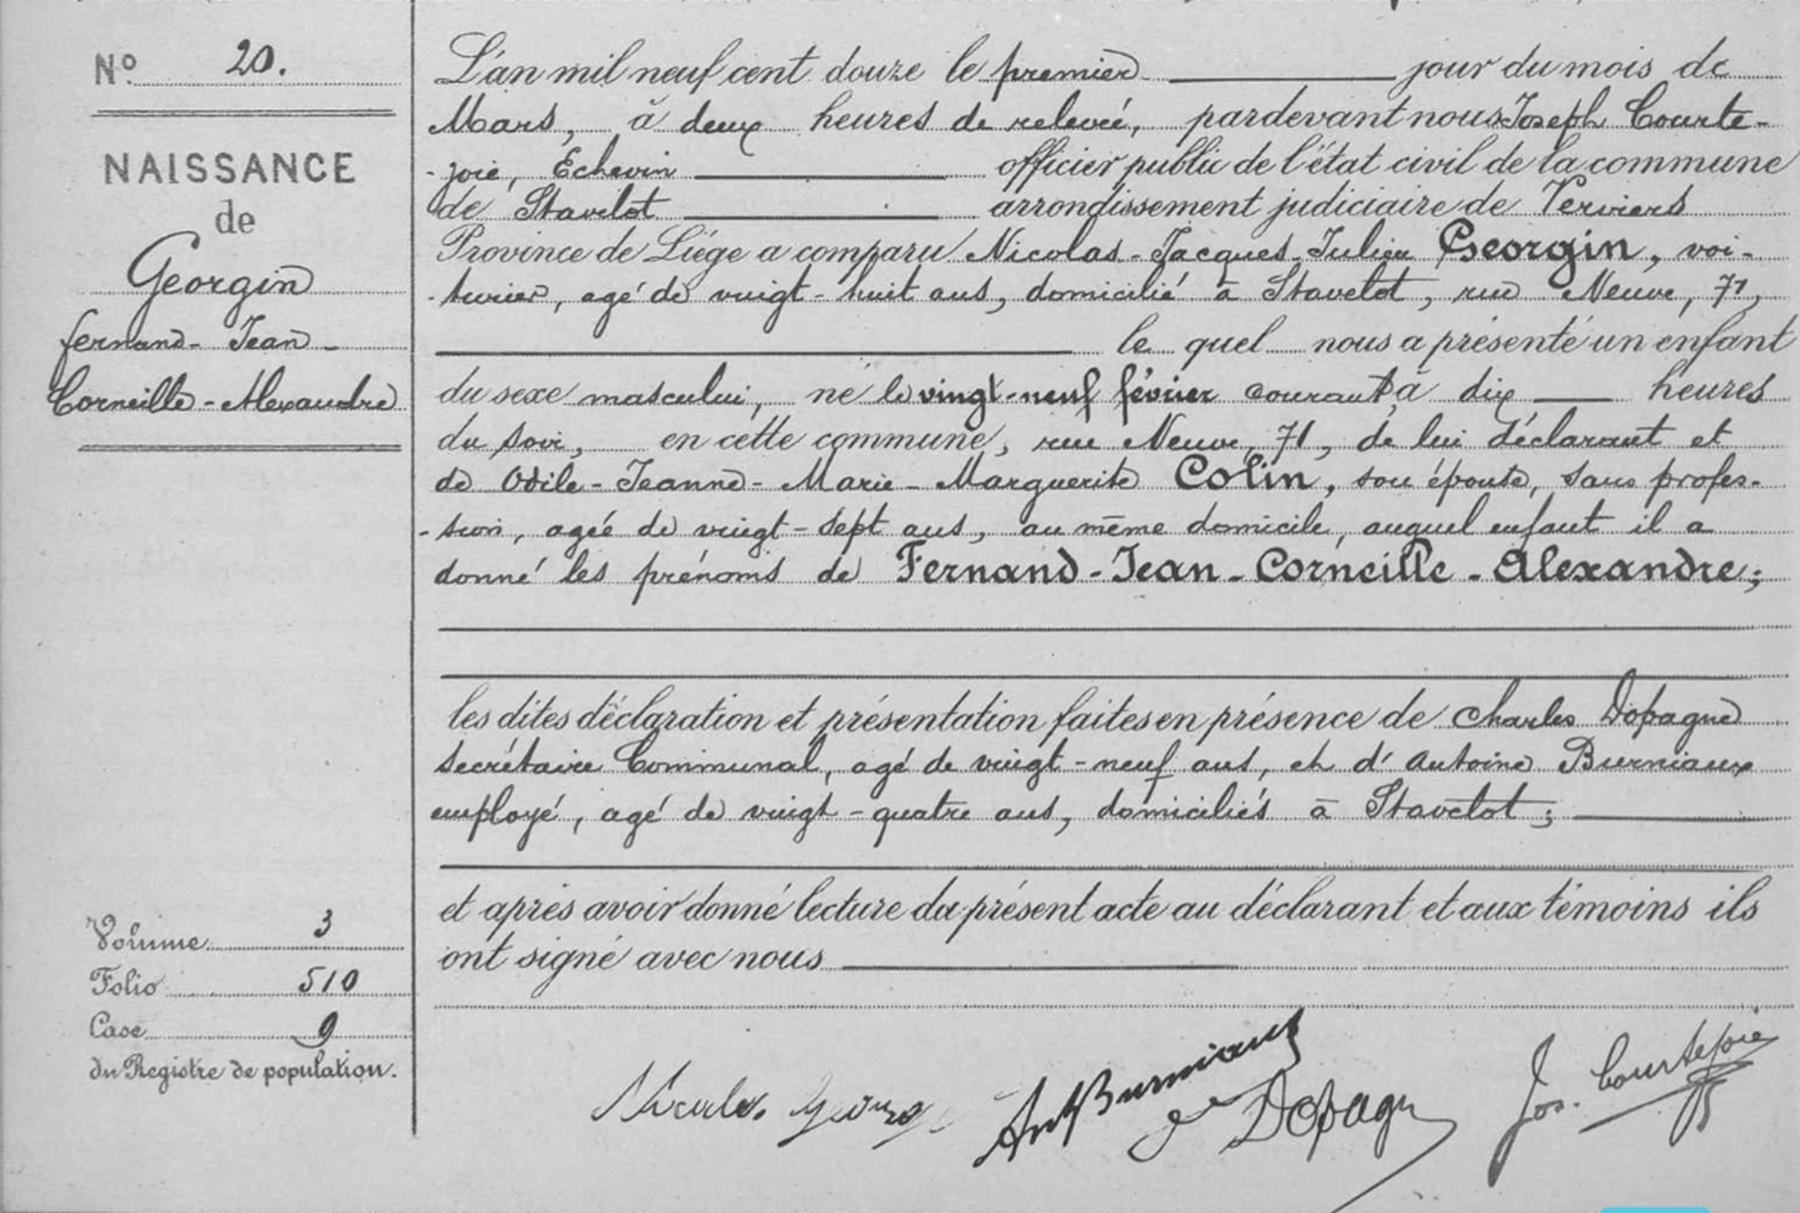 Nº 20.
NAISSANCE
de
Georgin
fernand - Jean -
Corneille - Alexandre
L'an mil neuf cent douze le premier jour du mois de
Mars, à deux heures de relevée, pardevant nous Joseph Courte-
-joie, Echevin officier public de l'état civil de la commune
de Stavelot arrondissement judiciaire de Verviers
Province de Liége a comparu Nicolas-Jacques-Julien Georgin, voi-
-turier, agé de vingt-huit ans, domicilié à Stavelot, rue Neuve, 71,
le quel nous a présenté un enfant
du sexe masculin, né le vingt-neuf février courant à dix heures
du soir, en cette commune, rue Neuve, 71, de lui déclarant et
de Odile-Jeanne-Marie-Marguerite Colin, son épouse, sans profes-
-sion, agée de vingt-sept ans, au même domicile, auquel enfant il a
donné les prénoms de Fernand-Jean-Corneille-Alexandre;
les dites déclaration et présentation faites en présence de Charles Dopagne
secrétaire Communal, agé de vingt-neuf ans, et d'Antoine Burniaux
employé, agé de vingt-quatre ans, domiciliés à Stavelot;
et après avoir donné lecture du présent acte au déclarant et aux témoins ils
ont signé avec nous
Volume 3
Folio 510
Case 9
du Registre de population.
Nicolas Georgin
Ant Burniaux
Dopagne
Jos. Courtejoie